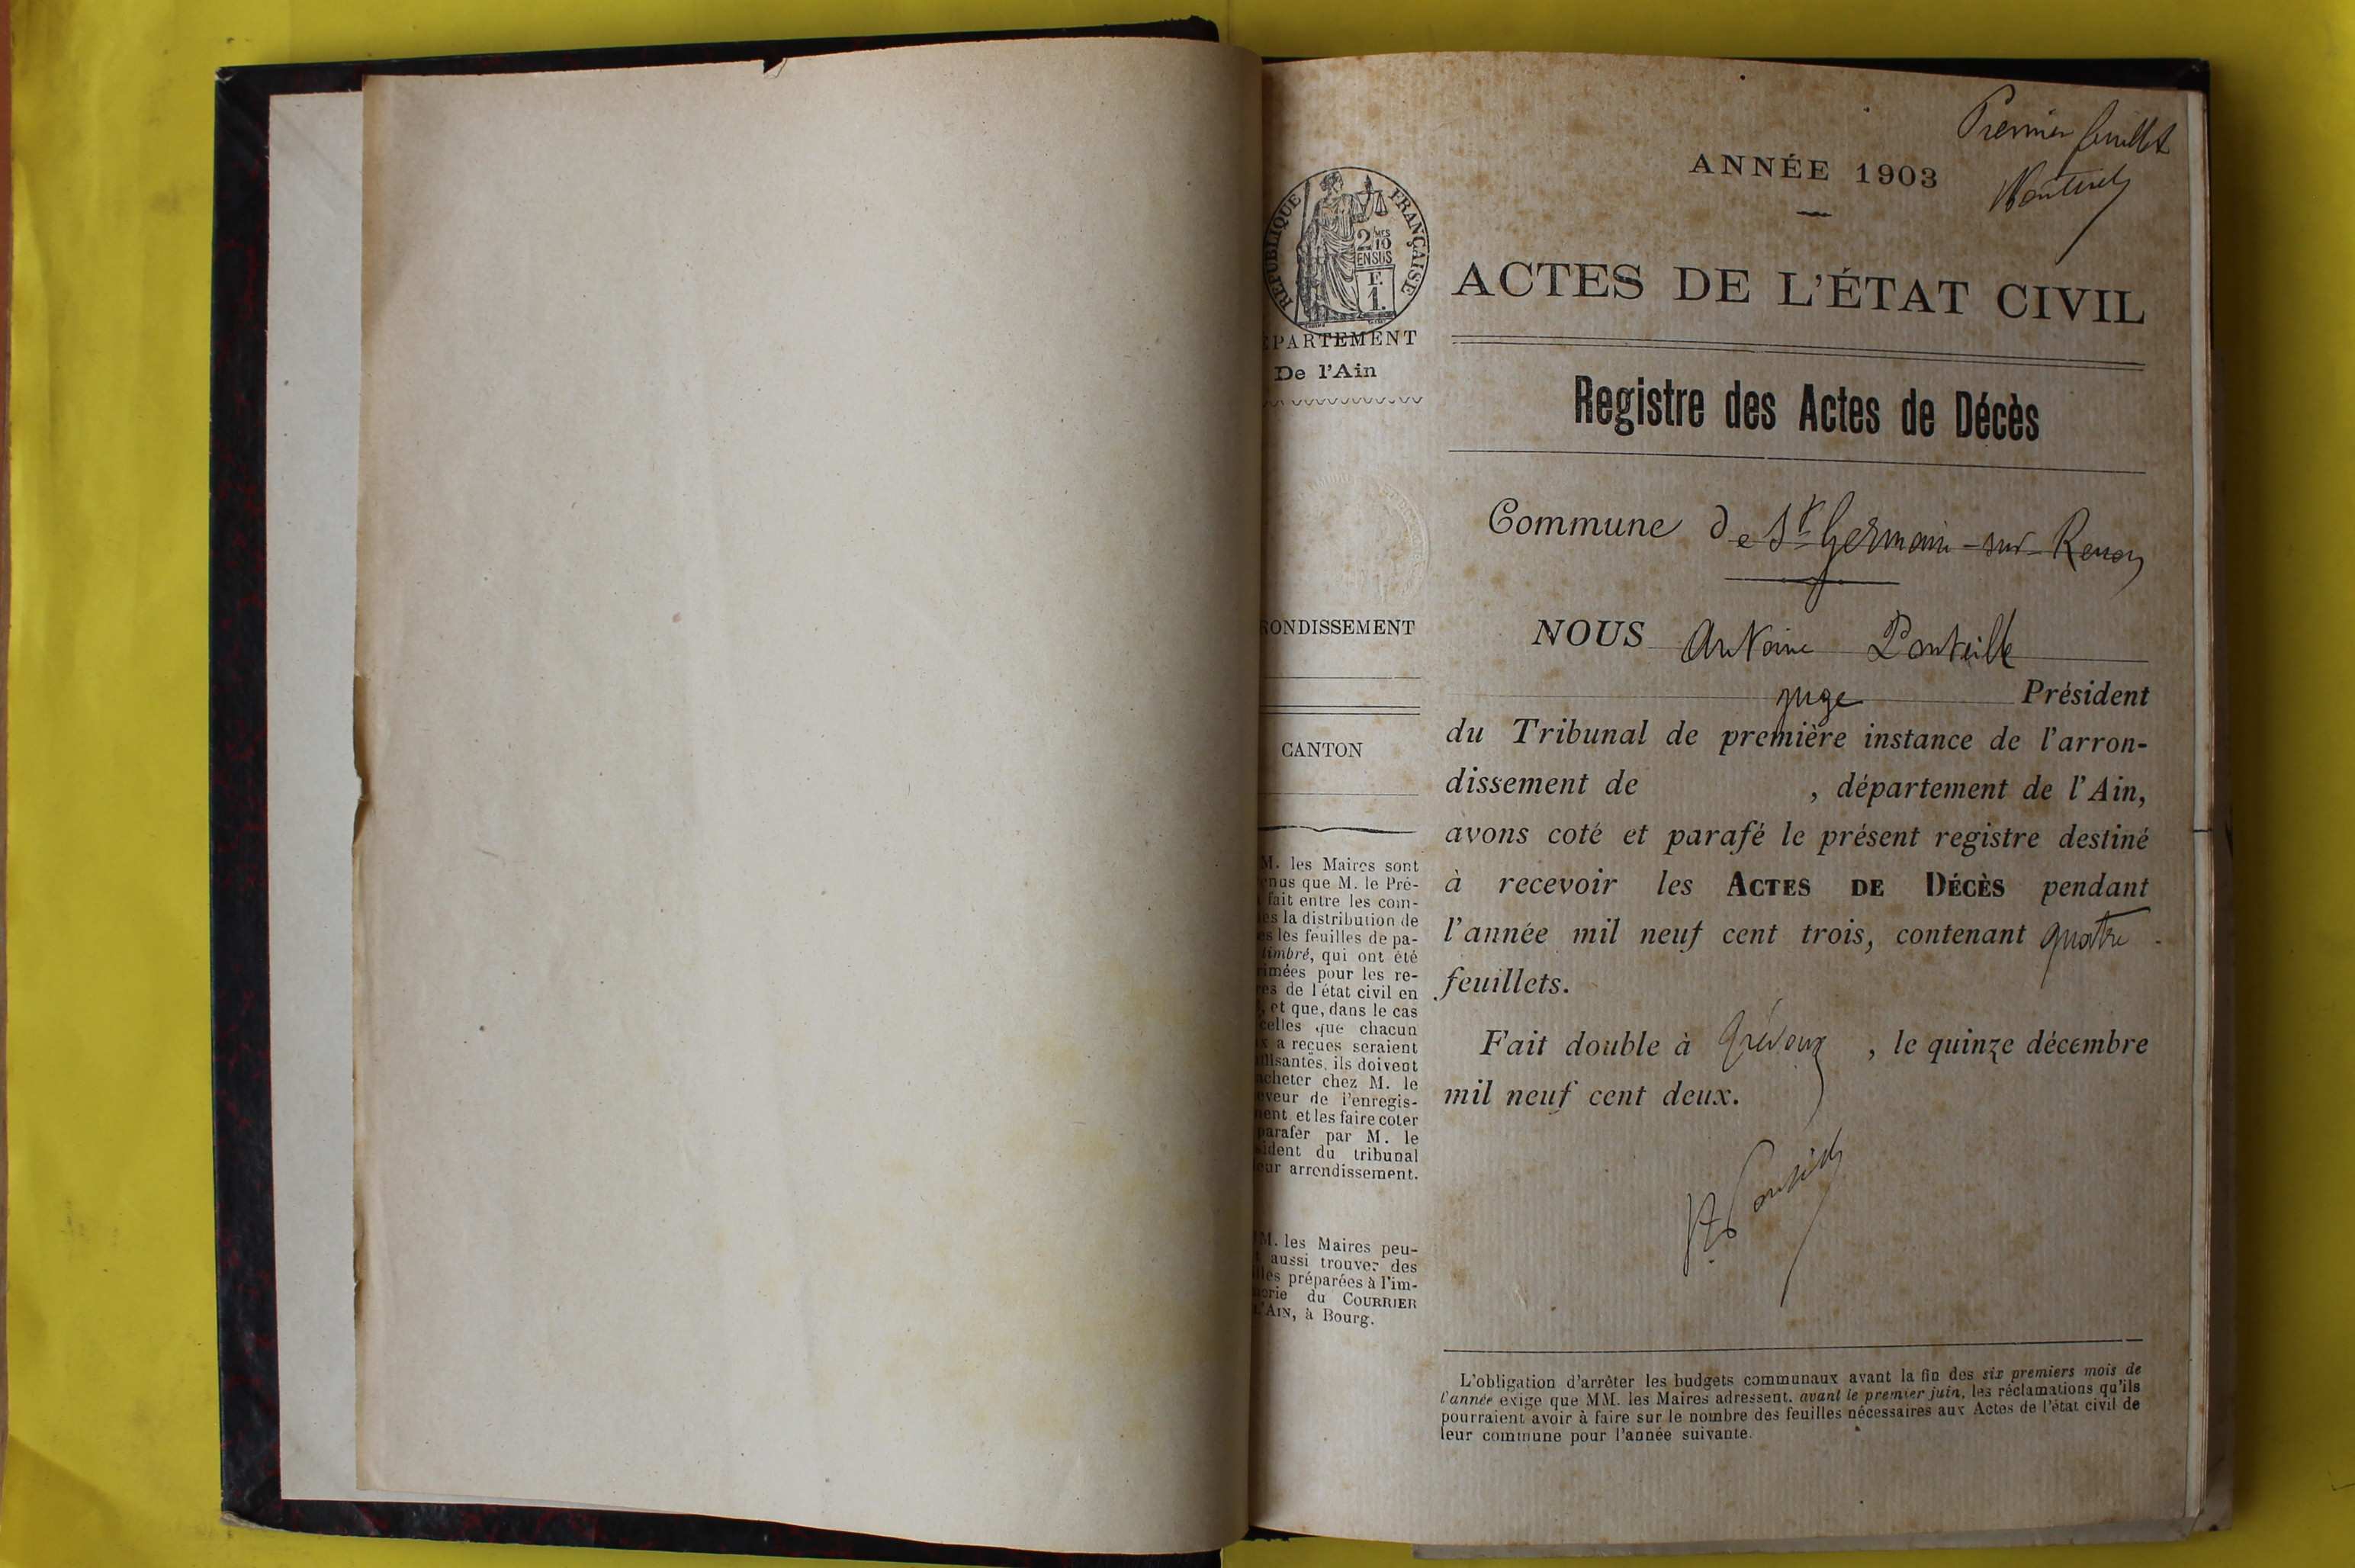 Premier feuillet
ANNÉE 1903
RÉPUBLIQUE FRANÇAISE
2/10
MES
EN SUS
F.
1.
ACTES DE L'ÉTAT CIVIL
PARTEMENT
De l'Ain
Registre des Actes de Décès
Commune de St Germain-sur-Renon
ONDISSEMENT
NOUS Antoine Ponteille
juge Président
CANTON
du Tribunal de première instance de l'arron-
dissement de , département de l'Ain,
avons coté et parafé le présent registre destiné
à recevoir les ACTES DE DÉCÈS pendant
l'année mil neuf cent trois, contenant quatre
feuillets.
Fait double à Trévoux , le quinze décembre
mil neuf cent deux.
M. les Maires sont
nus que M. le Pré-
fait entre les com-
es la distribution de
es les feuilles de pa-
timbré, qui ont été
imées pour les re-
es de l'état civil en
, et que, dans le cas
celles que chacun
x a reçues seraient
ffisantes, ils doivent
acheter chez M. le
eveur de l'enregis-
ment et les faire coter
parafer par M. le
sident du tribunal
eur arrondissement.
M. les Maires peu-
aussi trouver des
lles préparées à l'im-
erie du COURRIER
L'AIN, à Bourg.
L'obligation d'arrêter les budgets communaux avant la fin des six premiers mois de
l'année exige que MM. les Maires adressent, avant le premier juin, les réclamations qu'ils
pourraient avoir à faire sur le nombre des feuilles nécessaires aux Actes de l'état civil de
leur commune pour l'année suivante.